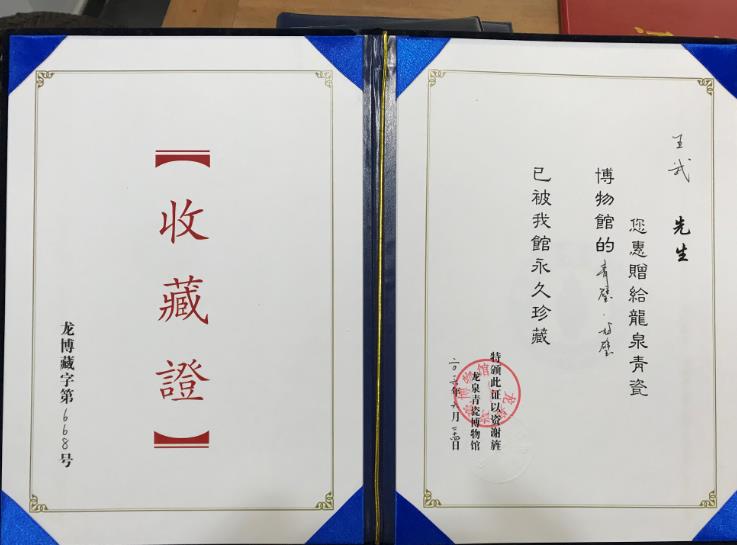 【收藏證】
龙博藏字第6668号
王武 先生
您惠贈给龍泉青瓷
博物館的青瓷
已被我館永久珍藏
特颁此证以资谢旌
龙泉青瓷博物馆
年 月 日